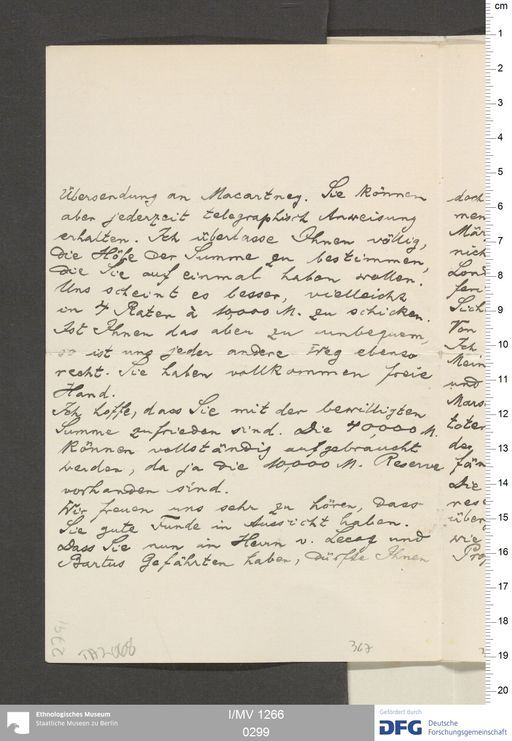 Übersendung an Macartney. Sie können
aber jederzeit telegraphisch Anweisung
erhalten. Ich überlasse Ihnen völlig,
die Höhe der Summe zu bestimmen,
die Sie auf einmal haben wollen.
Uns scheint es besser, vielleicht
in 4 Raten à 10,000 M. zu schicken.
Ist Ihnen das aber zu unbequem,
so ist uns jeder andere Weg ebenso
recht. Sie haben vollkommen freie
Hand.
Ich hoffe, dass Sie mit der bewilligten
Summe zufrieden sind. Die 40,000 M.
können vollständig aufgebraucht
werden, da ja die 10,000 M. Reserve
vorhanden sind.
Wir freuen uns sehr zu hören, dass
Sie gute Funde in Aussicht haben.
Dass Sie nun in Herrn v. Lecoq und
Bartus Gefährten haben, dürfte Ihnen
367
dort
men
nich
Ich
Mein
und
Mars
toter
der
Die
rese
über
wie
Pro
cm
1
2
3
4
5
6
7
8
9
10
11
12
13
14
15
16
17
18
19
20
Ethnologisches Museum
Staatliche Museen zu Berlin
I/MV 1266
0299
Gefördert durch
DFG Deutsche
Forschungsgemeinschaft